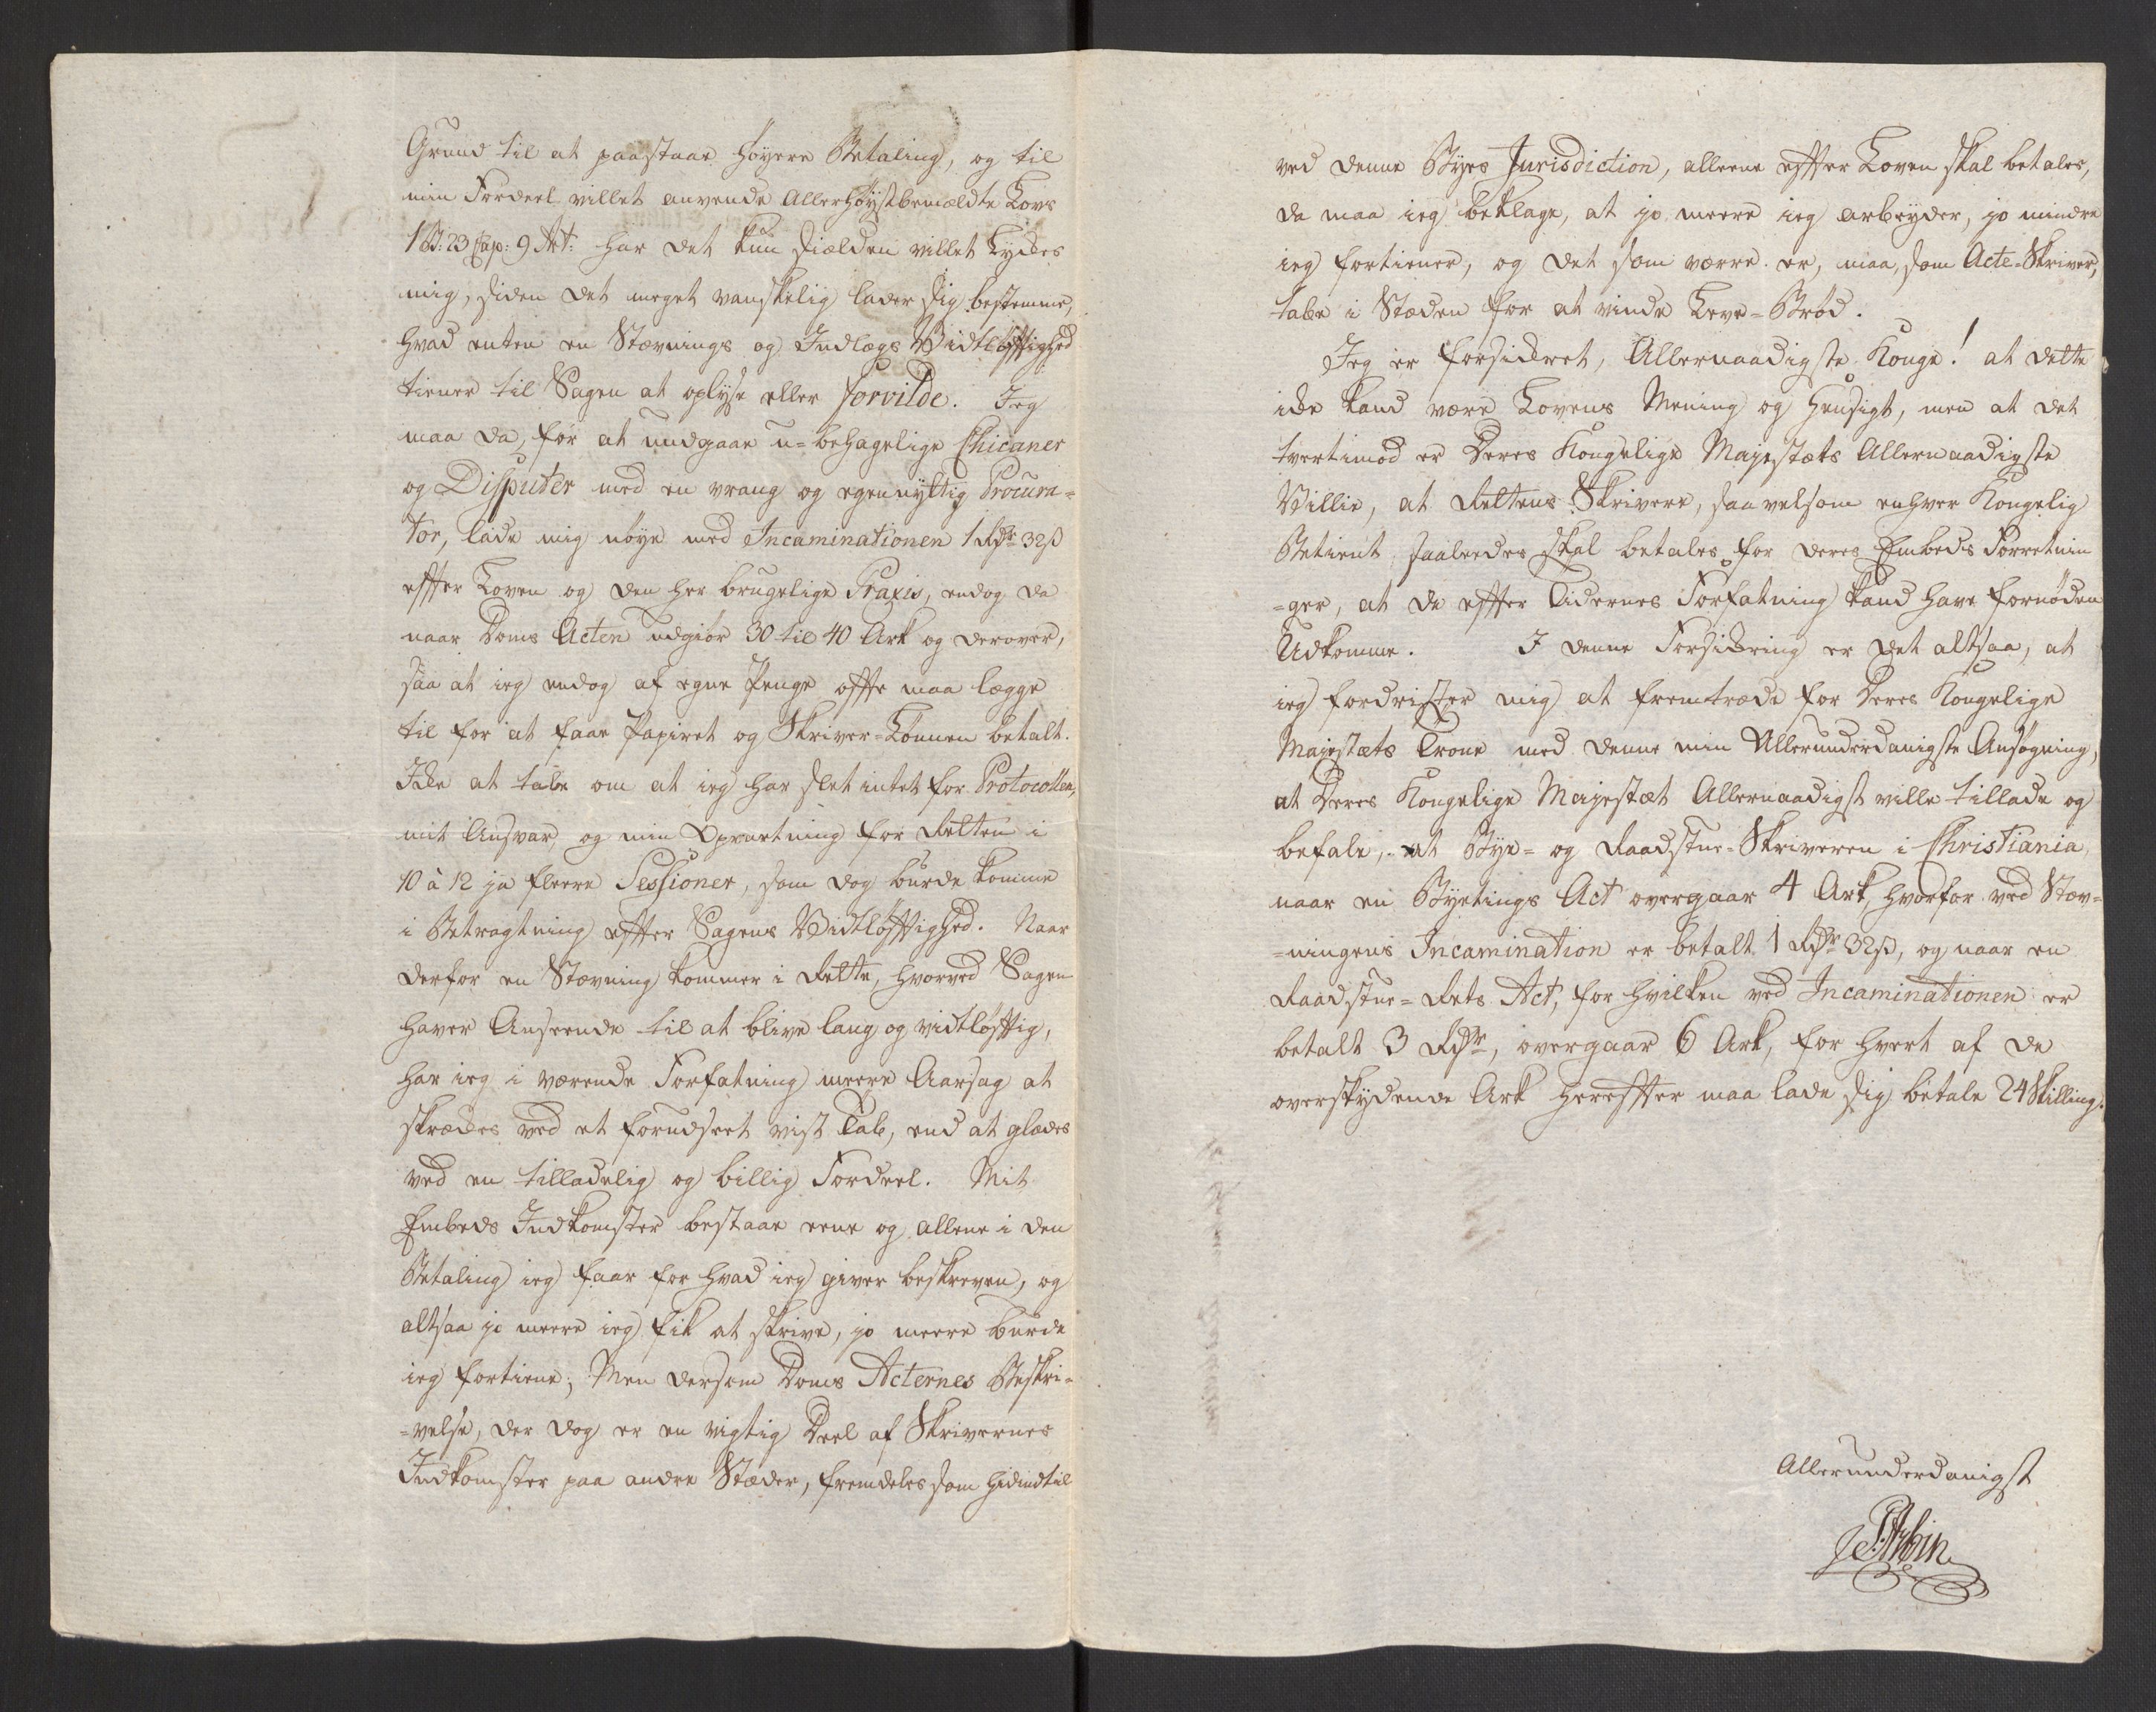 Grund til at paastaae høyere Betaling, og til
min Fordeel villet anvende Allerhøystbemældte Lovs
1 B: 23 Cap: 9 Art: har det kun siælden villet Lyckes
mig, siden det meget vanskelig lader sig bestemme,
hvad enten en Stævnings og Indlægs Vidtløftighed
tiener til Sagen at oplyse eller forvilde. Jeg
maa da, for at undgaae u-behagelige Chicaner
og Disputer med en vrang og egennyttig Procura-
tor, lade mig nøye med Incaminationen 1 Rdr 32 ß
efter Loven og den her brugelige Praxis, endog da
naar Doms Acten udgiør 30 til 40 Ark og derover,
saa at ieg endog af egne Penge ofte maa lægge
til for at faae Papiret og Skriver-Lønnen betalt.
Icke at tale om at ieg har slet intet for Protocollen,
mit Ansvar, og min Opvartning for Retten i
10 à 12 ja fleere Sessioner, som dog burde komme
i Betragtning efter Sagens Vidtløftighed. Naar
derfor en Stævning kommer i Rette, hvorved Sagen
haver Anseende til at blive lang og vidtløftig,
har ieg i værende Forfatning meere Aarsag at
skrækkes ved et forudseet vist Tab, end at glædes
ved en tilladelig og billig Fordeel. Mit
Embeds Indkomster bestaae eene og allene i den
Betaling ieg faar for hvad ieg giver beskreven, og
altsaa jo meere ieg fik at skrive, jo meere burde
ieg fortiene; Men dersom Doms Acternes Beskri-
-velse, der dog er en vigtig Deel af Skrivernes
Indkomster paa andre Stæder, fremdeles som hidindtil
ved denne Byes Jurisdiction, alleene efter Loven skal betales,
da maa ieg beklage, at jo meere ieg arbeyder, jo mindre
ieg fortiener, og det som værre er, maa, som Acte-Skriver,
tabe i Stæden for at vinde Leve-Brød.
Jeg er forsickret, Allernaadigste Konge! at dette
icke kand være Lovens Mening og Hensigt, men at det
tvertimod er Deres Kongelige Majestæts Allernaadigste
Villie, at Rettens Skrivere, saavelsom enhver Kongelig
Betient saaleedes skal betales for deres Embeds Forretnin
-ger, at de efter Tidernes Forfatning kand have fornøden
Udkomme. I denne Forsickring er det altsaa, at
ieg fordrister mig at fremtræde for Deres Kongelige
Majestæts Trone med denne min Allerunderdanigste Ansøgning,
at Deres Kongelige Majestæt Allernaadigst ville tillade og
befale, at Bye- og Raadstue-Skriveren i Christiania,
naar en Byetings Act overgaar 4 Ark, hvorfor ved Stæv-
-ningens Incamination er betalt 1 Rdr 32 ß, og naar en
Raadstue-Rets Act, for hvilken ved Incaminationen er
betalt 3 Rdr, overgaar 6 Ark, for hvert af de
overskydende Ark herefter maa lade sig betale 24 Skilling.
Allerunderdanigst